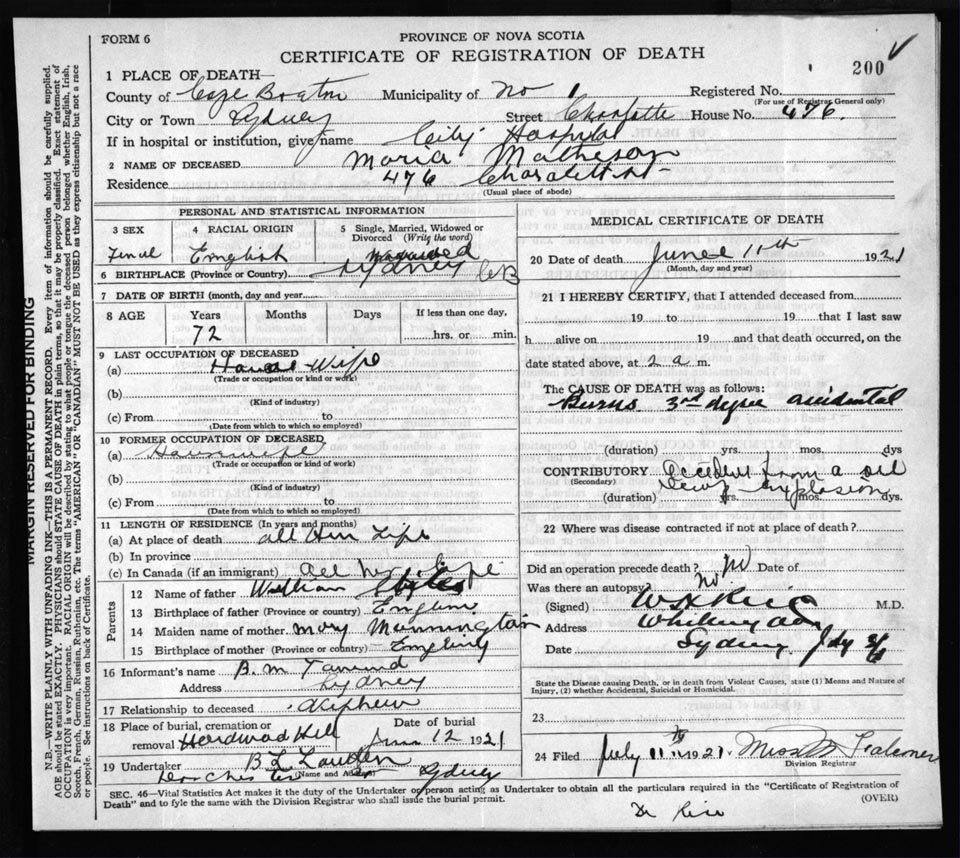 FORM 6
PROVINCE OF NOVA SCOTIA
CERTIFICATE OF REGISTRATION OF DEATH
200
1 PLACE OF DEATH—
County of Cape Breton Municipality of No 1 Registered No.
(For use of Registrar General only)
City or Town Sydney Street Charlotte House No. 476.
If in hospital or institution, give name City Hospital
2 NAME OF DECEASED Maria Matheson
Residence 476 Charlotte St
(Usual place of abode)
PERSONAL AND STATISTICAL INFORMATION
3 SEX 4 RACIAL ORIGIN 5 Single, Married, Widowed or Divorced (Write the word)
Femal English
6 BIRTHPLACE (Province or Country) Sydney CB
7 DATE OF BIRTH (month, day and year)
8 AGE Years Months Days If less than one day,
72 hrs. or min.
9 LAST OCCUPATION OF DECEASED
(a) House Wife
(Trade or occupation or kind or work)
(b)
(Kind of industry)
(c) From to
(Date from which to which so employed)
10 FORMER OCCUPATION OF DECEASED
(a) Housewife
(Trade or occupation or kind of work)
(b)
(Kind of industry)
(c) From to
(Date from which to which so employed)
11 LENGTH OF RESIDENCE (In years and months)
(a) At place of death all Her Life
(b) In province
(c) In Canada (if an immigrant) all her Life
Parents
12 Name of father William
13 Birthplace of father (Province or country)
14 Maiden name of mother Mary Mannington
15 Birthplace of mother (Province or country)
16 Informant's name B. M
Address Sydney
17 Relationship to deceased Nephew
18 Place of burial, cremation or removal Hardwood Hill Date of burial June 12 1921
19 Undertaker B L
(Name and Address) Dorchester Sydney
MEDICAL CERTIFICATE OF DEATH
20 Date of death June 11th 1921
(Month, day and year)
21 I HEREBY CERTIFY, that I attended deceased from
19 to 19 that I last saw
h alive on 19 and that death occurred, on
date stated above, at 2 a. m.
The CAUSE OF DEATH was as follows:
Burns 3rd degree accidental
(duration) yrs. mos. dys
CONTRIBUTORY from a oil
(Secondary) explosion
(duration) yrs. mos. dys.
22 Where was disease contracted if not at place of death?
Did an operation precede death? No Date of
Was there an autopsy? no
(Signed) M.D.
Address Whitney
Date Sydney
State the Disease causing Death, or in death from Violent Causes, state (1) Means and Nature of
Injury, (2) whether Accidental, Suicidal or Homicidal.
23
24 Filed July 11 1921 Miss
Division Registrar
SEC. 46—Vital Statistics Act makes it the duty of the Undertaker or person acting as Undertaker to obtain all the particulars required in the "Certificate of Registration of
Death" and to fyle the same with the Division Registrar who shall issue the burial permit.
(OVER)
Dr Rice
MARGIN RESERVED FOR BINDING
N.B.—WRITE PLAINLY WITH UNFADING INK—THIS IS A PERMANENT RECORD. Every item of information should be carefully supplied.
AGE should be stated EXACTLY. PHYSICIANS should STATE CAUSE OF DEATH in plain terms, so that it may be properly classified. Exact statement of
OCCUPATION is very important. RACIAL ORIGIN will be described by stating to what people or tongue the deceased person belonged whether English, Irish,
Scotch, French, German, Russian, Ruthenian, etc. The terms "AMERICAN" OR "CANADIAN" MUST NOT BE USED as they express citizenship but not a race
or people. See instructions on back of Certificate.